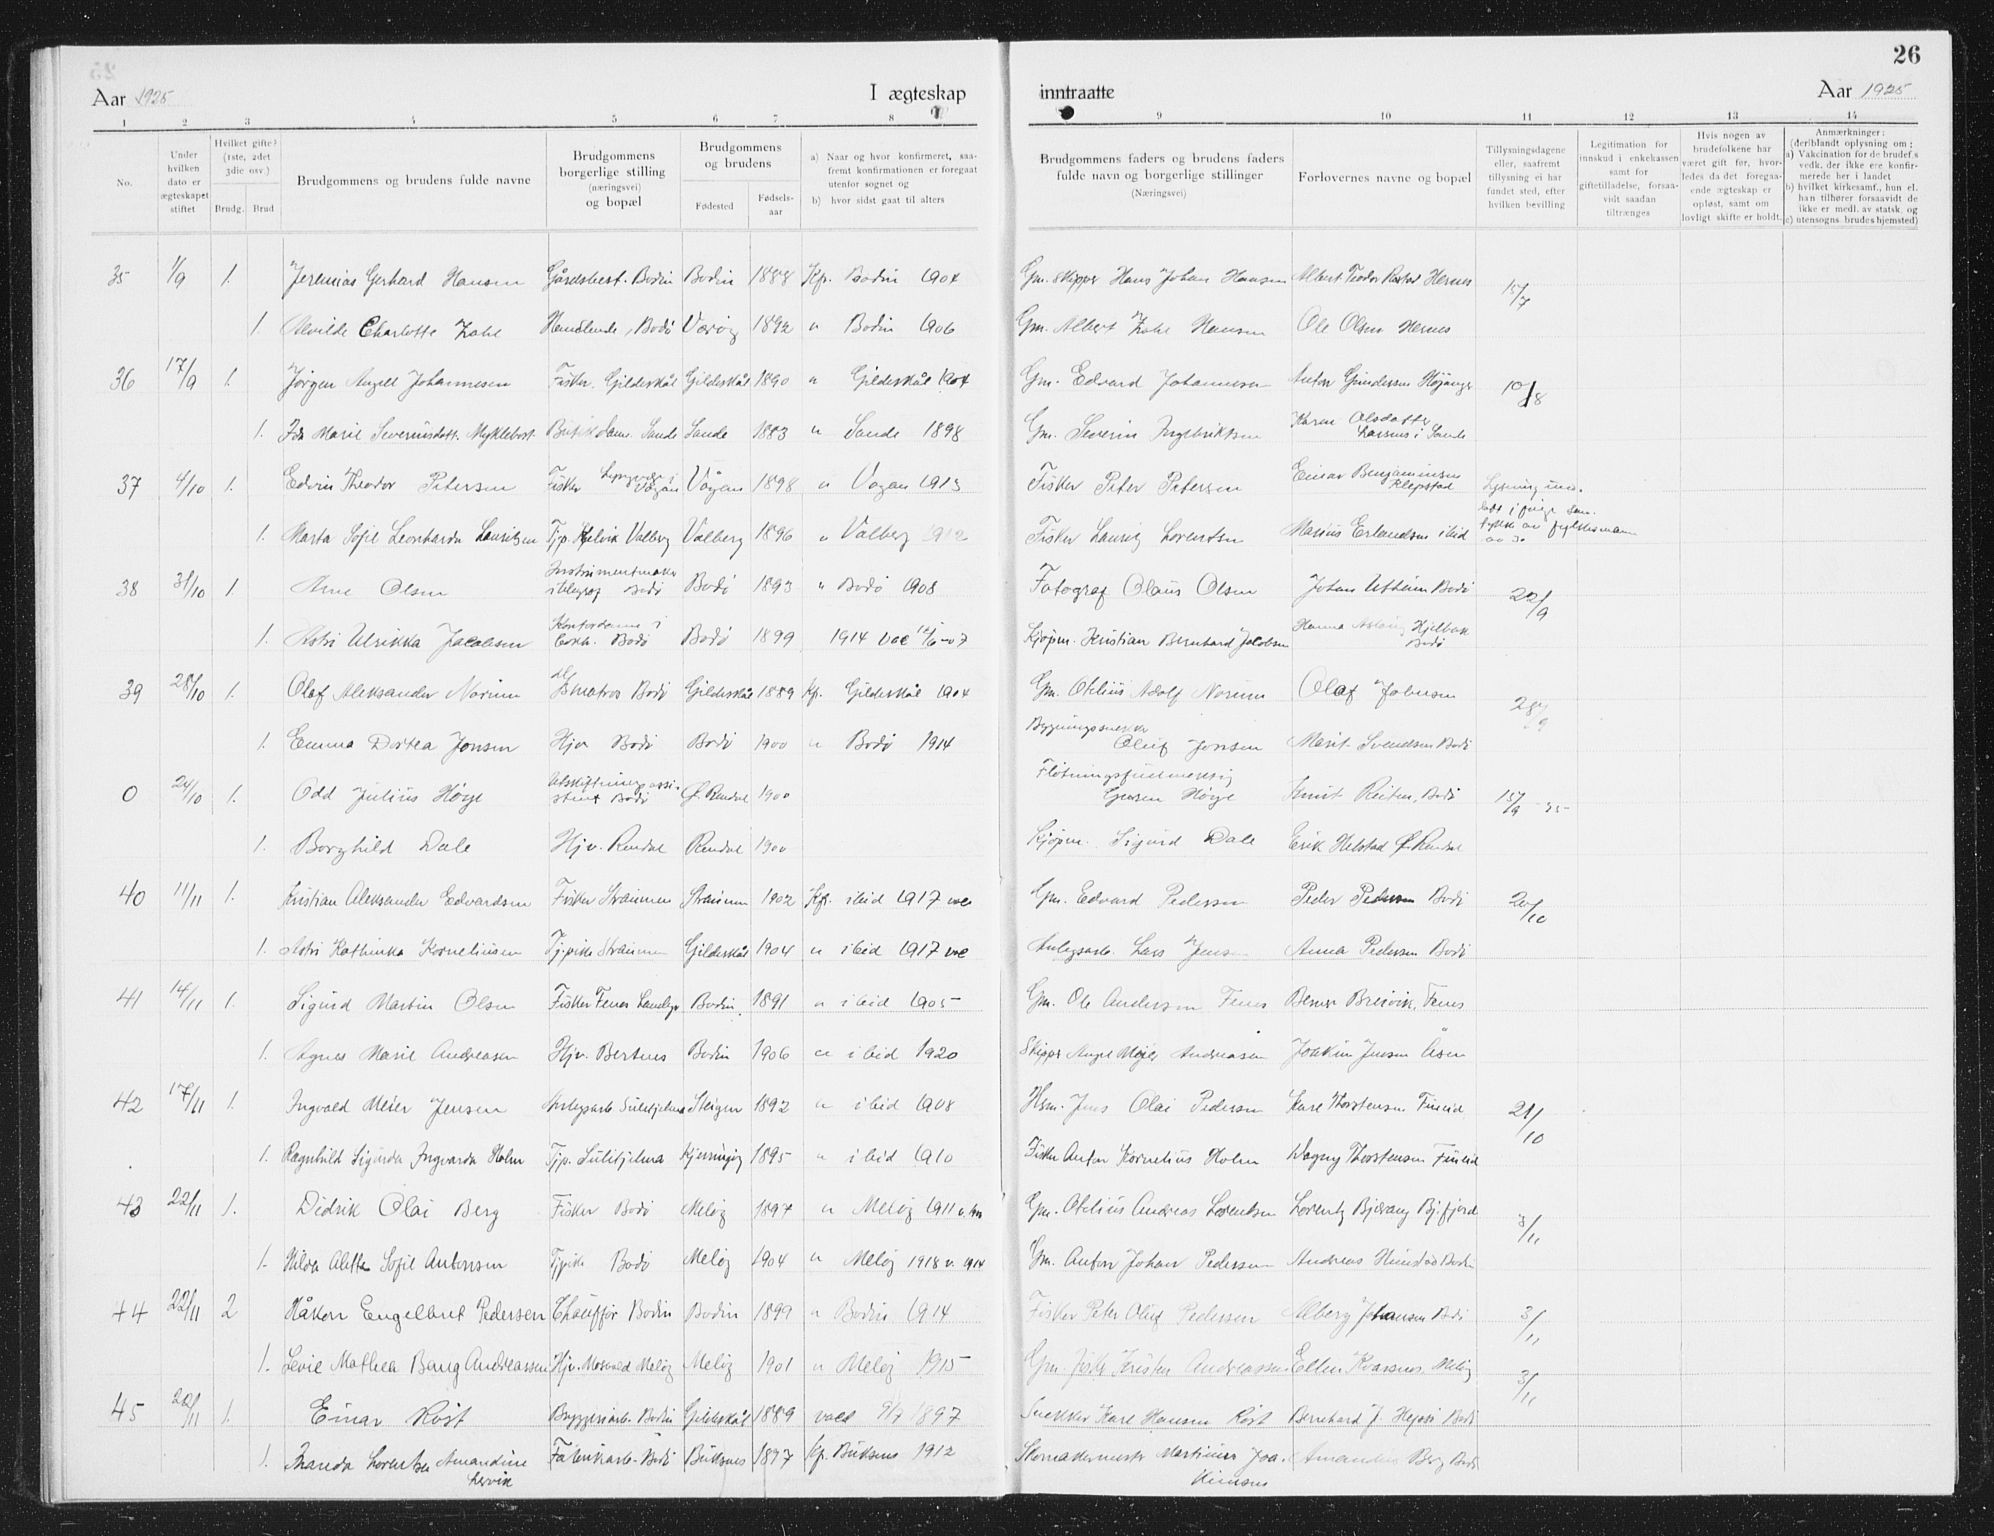 26
Aar 1925 I ægteskap inntraatte Aar 1925
1 2 3 4 5 6 7 8 9 10 11 12 13 14
No.
Under hvilken dato er ægteskapet stiftet
Hvilket gifte? (1ste, 2det 3die osv.)
Brudg. Brud
Brudgommens og brudens fulde navne
Brudgommens borgerlige stilling (næringsvei) og bopæl
Brudgommens og brudens
Fødested Fødselsaar
a) Naar og hvor konfirmeret, saafremt konfirmationen er foregaat utenfor sognet og
b) hvor sidst gaat til alters
Brudgommens faders og brudens faders fulde navn og borgerlige stillinger
(Næringsvei)
Forlovernes navne og bopæl
Tillysningsdagene eller, saafremt tillysning ei har fundet sted, efter hvilken bevilling
Legitimation for innskud i enkekassen samt for giftetilladelse, forsaavidt saadan tiltrænges
Hvis nogen av brudefolkene har været gift før, hvorledes da det foregaaende ægteskap er opløst, samt om lovligt skifte er holdt.
Anmærkninger: (deriblandt oplysning om:
a) Vakcination for de brudef.s vedk. der ikke ere konfirmerede her i landet
b) hvilket kirkesamf., hun el. han tilhører forsaavidt de ikke er medl. av statsk. og
c) utensogns. brudes hjemsted)
35 1/9 1. Jeremias Gerhard Hansen Gårdsbest. Bodin Bodin 1888 Kf. Bodin 1904 Gm. Skipper Hans Johan Hansen Albert Teodor Hernes 15/7
1. Alvilde Charlotte Zahl Handlende, Bodø Værøy 1892 " Bodin 1906 Gm. Albert Zahl Hansen Ole Olsen Hernes
36 17/9 1. Jørgen Angell Johannesen Fisker. Gildeskål Gildeskål 1890 " Gildeskål 1904 Gm. Edvard Johannesen Anton Gundersen 10/8
1. Ida Marie Severinsdatt. Myklebost. Sande Sande 1883 " Sande 1898 Gm. Severin Ingebriktsen Karen Olsdatter Larsnes i Sande
37 4/10 1. Edvin Theodor Petersen Fisker Vågan Vågan 1898 " Vågan 1913 Fisker Peter Petersen Einar Benjaminsen Klepstad
1. Marta Sofie Leonharda Lauritzen Tjp. Valberg Valberg 1896 " Valberg 1912 Fisker Lauritz Lorentsen Marius Erlandsen ibid
38 31/10 1. Arne Olsen Instrumentmaker Bodø Bodø 1893 " Bodø 1908 Fotograf Olaus Olsen Johan Bodø 22/9
1. Astri Ulrikka Jacobsen Kontordame i Bodø Bodø 1899 1914 Kjøpm. Kristian Bernhard Jacobsen Hanna Aslaug Hjelbak Bodø
39 28/10 1. Olaf Aleksander Norum Bodø Gildeskål 1889 Kf. Gildeskål 1904 Gm. Otelius Adolf Norum Olaf Johnsen
1. Emma Dortea Jonsen Hjv Bodø Bodø 1900 " Bodø 1914 Oluf Jonsen Marit Svendsen Bodø
0 24/10 1. Odd Julius Høye Utskiftningsassistent Bodø Ø. Rendal 1900 Høye Knut Reiten, Bodø 15/9-25
1. Borghild Dale Hjv. Rendal Rendal 1900 Kjøpm. Sigurd Dale Erik Helstad Ø. Rendal
40 11/11 1. Kristian Aleksander Edvardsen Fisker Straumen Straumen 1902 Kf. ibid 1917 Gm. Edvard Pedersen Peder Pedersen Bodø 20/10
1. Astri Kathinka Korneliusen Tj.pike Straumen Gildeskål 1904 " ibid 1917 Anlegsarb. Lars Jensen Anna Pedersen Bodø
41 14/11 1. Sigurd Martin Olsen Fisker Fenes Landego Bodin 1891 " ibid 1905 Gm. Ole Andersen Fenes Berner Breivik, Fenes
1. Agnes Marie Andreasen Hjv. Bertnes Bodin 1906 " ibid 1920 Skipper Angel Meyer Andreasen Joakim Jensen Åsen
42 17/11 1. Ingvald Meier Jensen Anlegsarb Sulitjelma Steigen 1892 " ibid 1908 Hsm. Jens Olai Pedersen Karl Thorstensen Fineid 21/10
1. Ragnhild Sigurda Ingvarda Holm Tjp. Sulitjelma Kjerringøy 1895 " ibid 1910 Fisker Anton Kornelius Holm Dagny Thorstensen Fineid
43 22/11 1. Didrik Olai Berg Fisker Bodø Meløy 1897 " Meløy 1911 Gm. Otelius Andreas Lorentsen Lorentz Bjærang Bj.fjord 3/11
1. Hilda Aletta Sofie Antonsen Tjpike Bodø Meløy 1904 " Meløy 1918 Gm. Anton Johan Pedersen Andreas Bodin
44 22/11 2 Håkon Engelbret Pedersen Chauffør Bodin Bodin 1899 " Bodin 1914 Fisker Peter Oluf Pedersen Alberg Johansen Bodø 3/11
1. Levie Mathea Bang Andreassen Hjv. Meløy Meløy 1901 " Meløy 1915 Gm. Fisk. Kristen Andreassen Ellen Kvarsnes, Meløy 3/11
45 22/11 1. Einar Røst Bryggeriarb. Bodin Gildeskål 1889 1897 Snekker Karl Hansen Røst Bernhard J. Bodø
1. Lorentze Amandine Lervik Fabrikarb. Bodø Buksnes 1897 Kf. Buksnes 1912 Skomakermester Martinus Joakimsen Amandus Berg Bodø